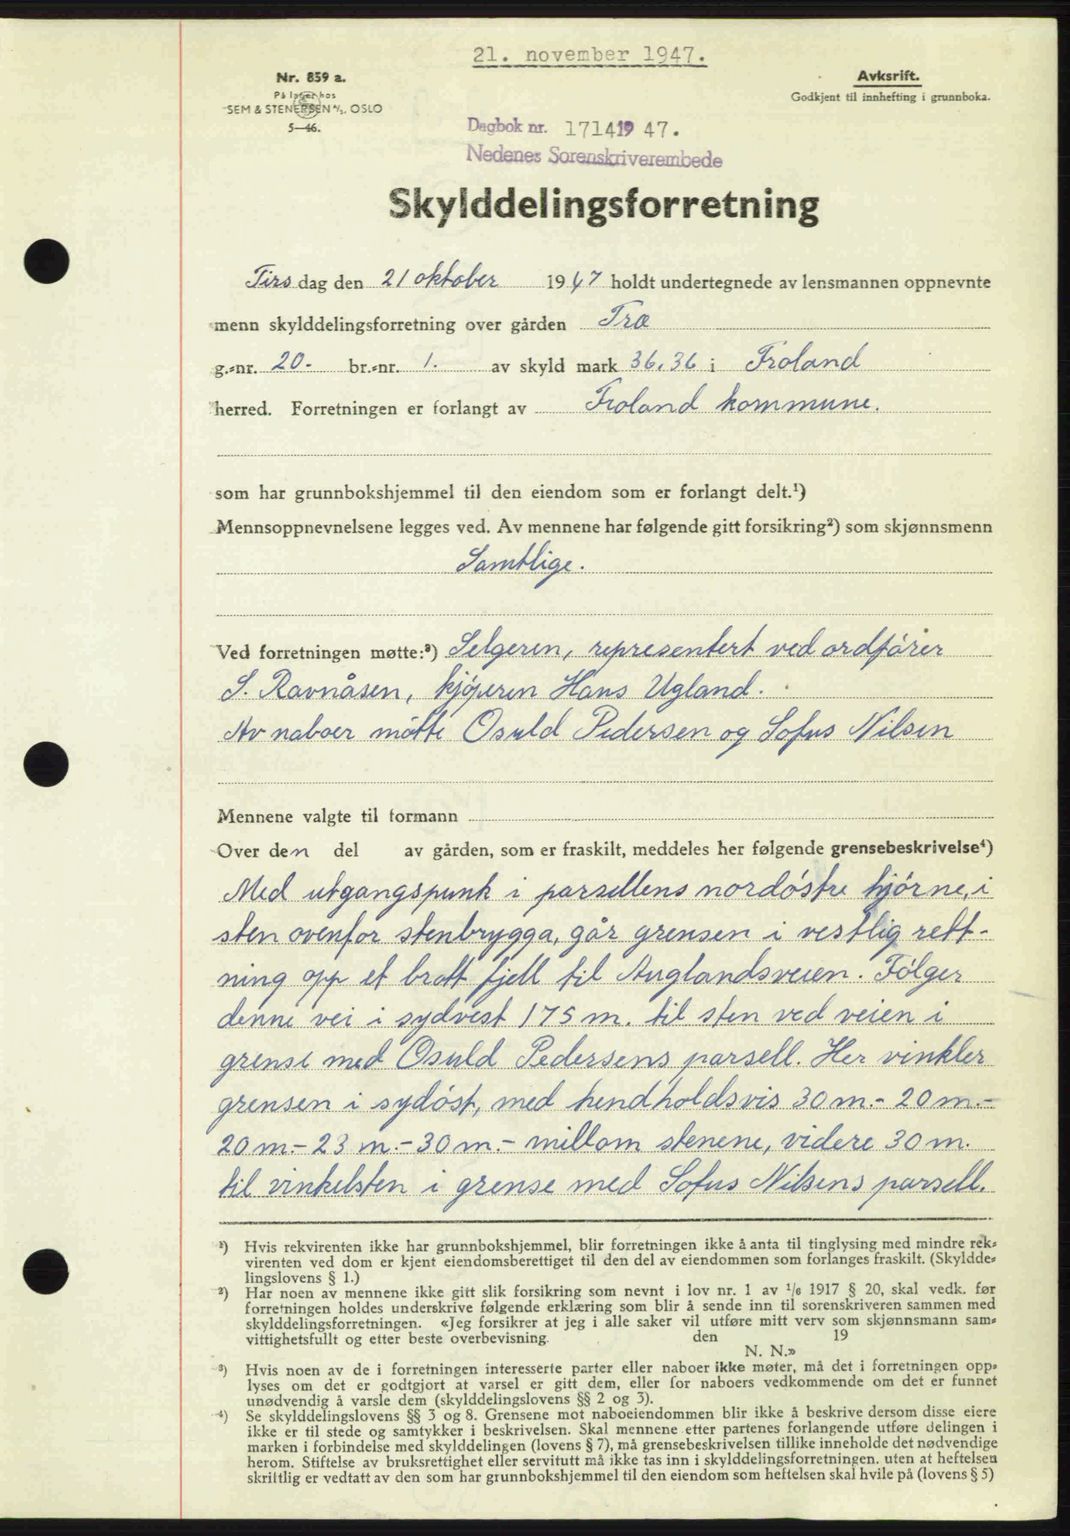 21. november 1947.
Nr. 859 a.
På lager hos
SEM & STENERSEN A/S. OSLO
5—46.
Avskrift.
Godkjent til innhefting i grunnboka.
Dagbok nr. 1714 19 47.
Nedenes Sorenskriverembede
Skylddelingsforretning
Tirs dag den 21 oktober 1947 holdt undertegnede av lensmannen oppnevnte
menn skylddelingsforretning over gården Træ
g.-nr. 20. br.-nr. 1. av skyld mark 36.36 i Froland
herred. Forretningen er forlangt av Froland kommune.
som har grunnbokshjemmel til den eiendom som er forlangt delt.¹)
Mennsoppnevnelsene legges ved. Av mennene har følgende gitt forsikring²) som skjønnsmenn
Samtlige.
Ved forretningen møtte:³) Selgeren, representert ved ordfører
S. Ravnåsen, kjøperen Hans Ugland.
Av naboer møtte Osuld Pedersen og Sofus Nilsen
Mennene valgte til formann
Over den del av gården, som er fraskilt, meddeles her følgende grensebeskrivelse⁴)
Med utgangspunk i parsellens nordöstre hjörne, i
sten ovenfor stenbrygga, går grensen i vestlig rett-
ning opp et bratt fjell til Auglandsveien. Fölger
denne vei i sydvest 175 m. til sten ved veien i
grense med Osuld Pedersens parsell. Her vinkler
grensen i sydöst, med hendholdsvis 30 m.- 20 m.-
20 m.- 23 m.- 30 m.- mellom stenene, videre 30 m.
til vinkelsten i grense med Sofus Nilsens parsell.
¹) Hvis rekvirenten ikke har grunnbokshjemmel, blir forretningen ikke å anta til tinglysing med mindre rek-
virenten ved dom er kjent eiendomsberettiget til den del av eiendommen som forlanges fraskilt. (Skyldde-
lingslovens § 1.)
²) Har noen av mennene ikke gitt slik forsikring som nevnt i lov nr. 1 av 1/6 1917 § 20, skal vedk. før
forretningen holdes underskrive følgende erklæring som blir å sende inn til sorenskriveren sammen med
skylddelingsforretningen. «Jeg forsikrer at jeg i alle saker vil utføre mitt verv som skjønnsmann sam-
vittighetsfullt og etter beste overbevisning. den 19
N. N.»
³) Hvis noen av de i forretningen interesserte parter eller naboer ikke møter, må det i forretningen opp-
lyses om det er godtgjort at varsel er gitt dem, eller for naboers vedkommende om det er funnet
unødvendig å varsle dem (skylddelingslovens §§ 2 og 3).
⁴) Se skylddelingslovens §§ 3 og 8. Grensene mot naboeiendommen blir ikke å beskrive dersom disse eiere
ikke er til stede og samtykker i beskrivelsen. Skal mennene etter partenes forlangende utføre delingen i
marken i forbindelse med skylddelingen (lovens § 7), må grensebeskrivelsen tillike inneholde det nødvendige
herom. Stiftelse av bruksrettighet eller servitutt må ikke tas inn i skylddelingsforretningen. uten at heftelsen
skriftlig er vedtatt av den som har grunnbokshjemmel til den eiendom som heftelsen skal hvile på (lovens § 5)